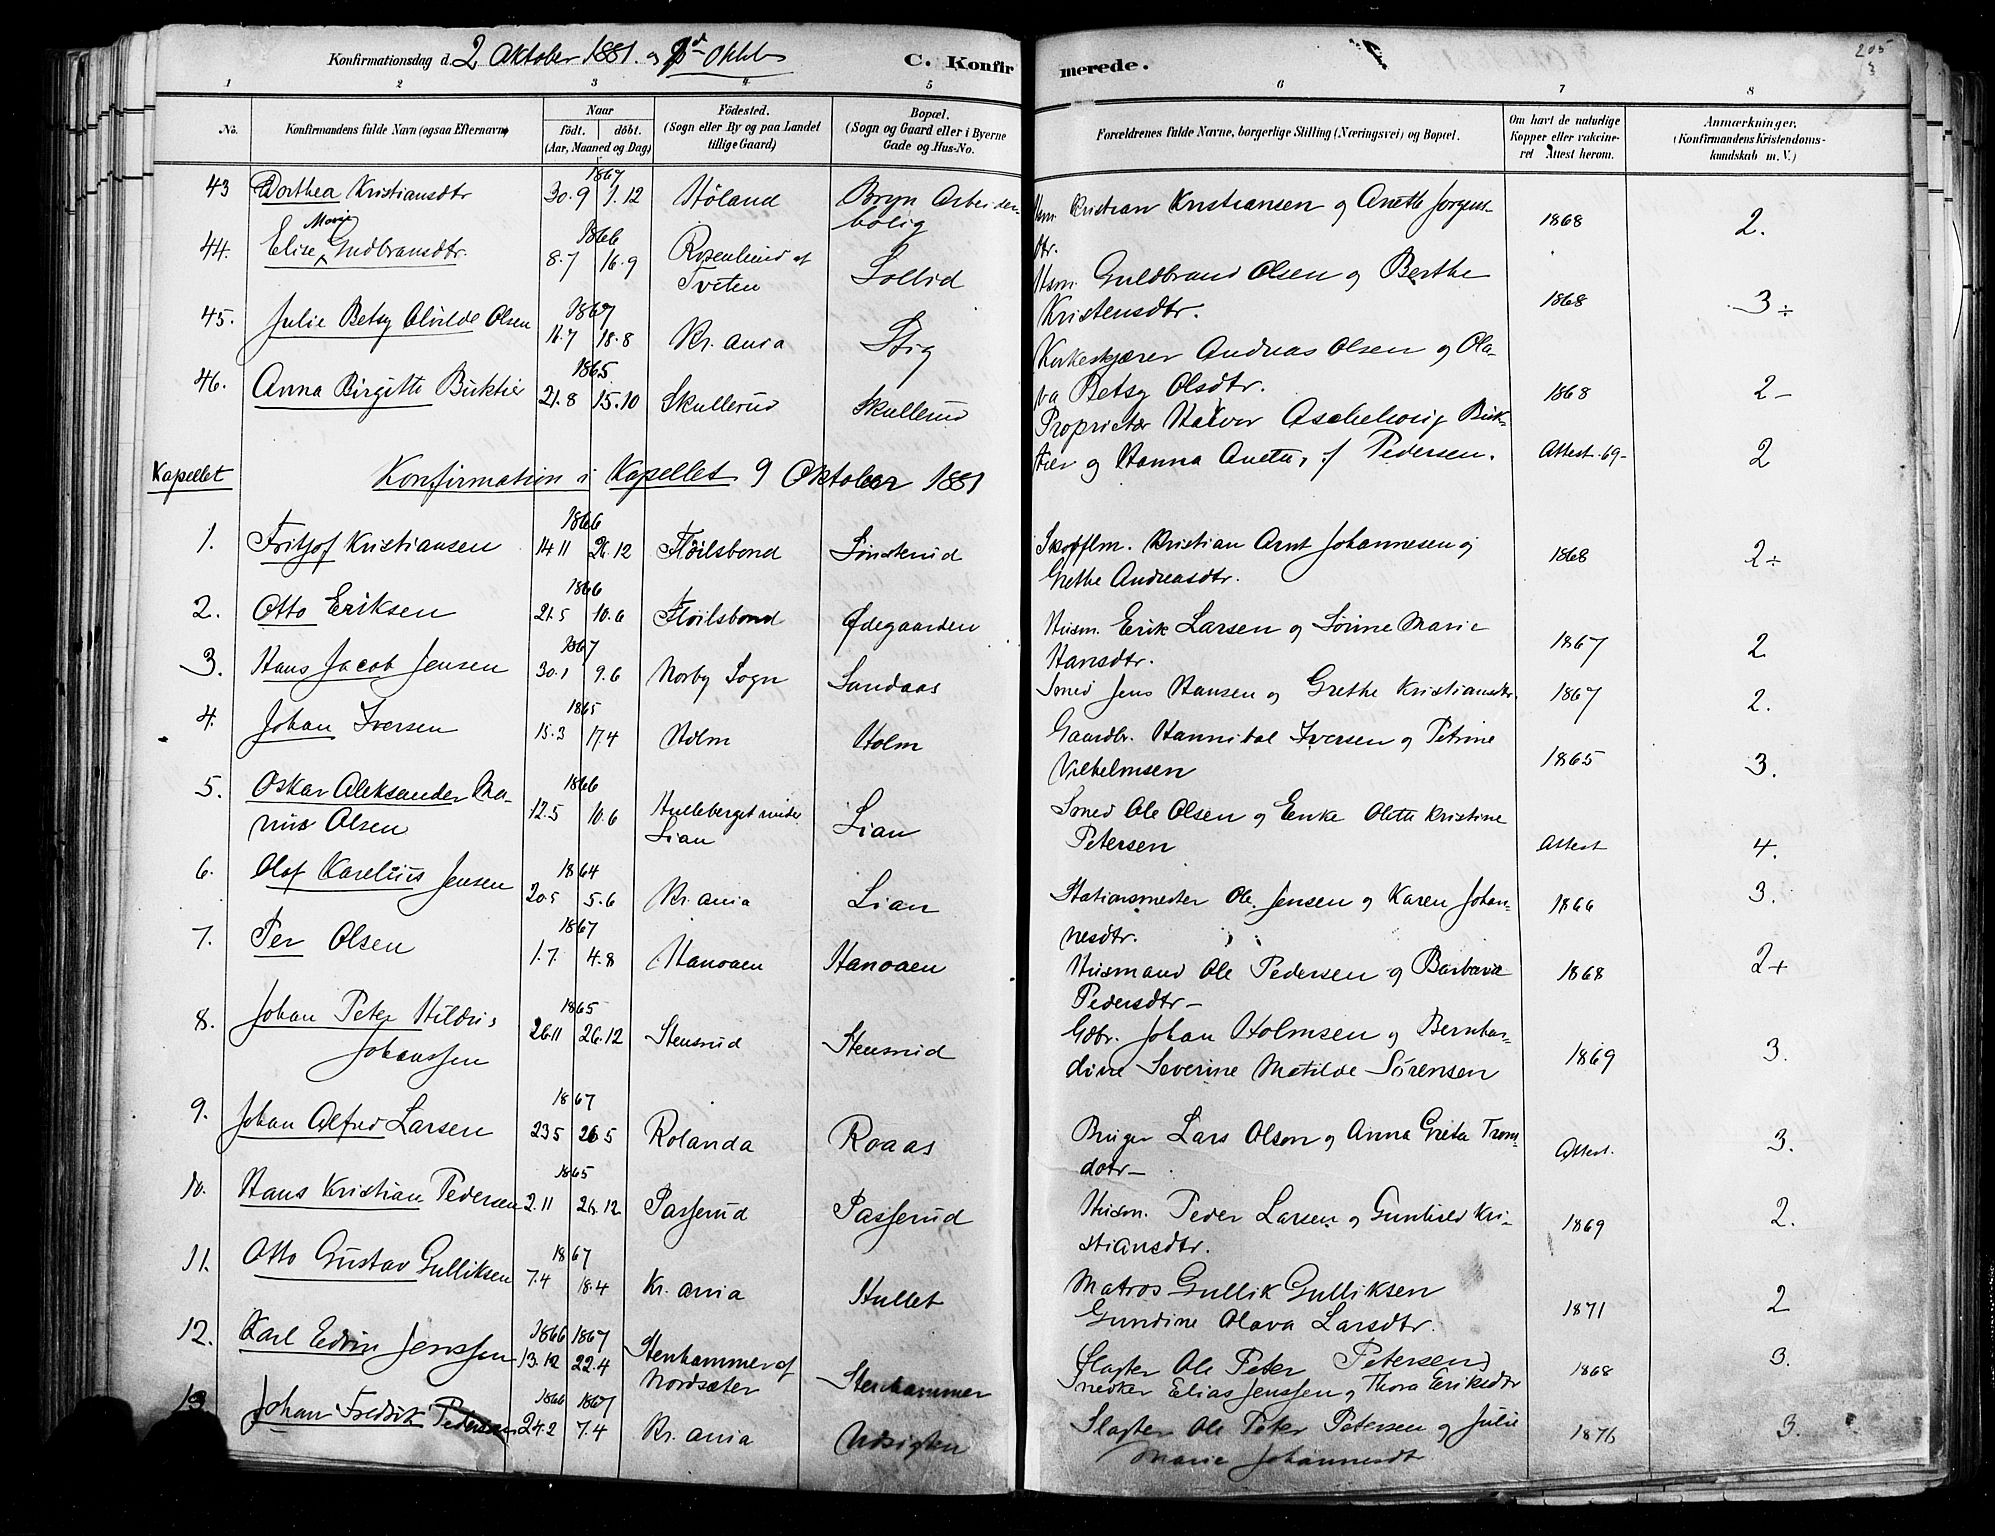 Konfirmationsdag d. 2 Oktober 1881. og
C. Konfirmerede.
205
1 2 3 4 5 6 7 8
No.
Konfirmandens fulde Navn (ogsaa Efternavn)
Naar
födt. döbt.
(Aar, Maaned og Dag)
Födested.
(Sogn eller By og paa Landet
tillige Gaard)
Bopæl.
(Sogn og Gaard eller i Byerne
Gade og Hus-No.
Forældrenes fulde Navne, borgerlige Stilling (Næringsvei) og Bopæl.
Om havt de naturlige
Kopper eller vakcine-
ret Attest herom.
Anmærkninger.
(Konfirmandens Kristendoms-
kundskab m. V.)
1867
43 Dorthea Kristiansdtr 30.9 1.12 Höland Bryn Arbeider-
bolig
Hsm. Kristian Kristiansen og Anette Jorgens-
dtr. 1868 2.
1866
44. Elise Marie Gudbransdtr. 8.7 16.9 Rosenlund af
Tveten Sollid
Hsm. Guldbrand Olsen og Berthe
Kristensdtr. 1868 3÷
1867
45. Julie Betsy Alvilde Olsen 11.7 18.8 Kr.ania Stig
Kirkeskjærer Andreas Olsen og Ola-
va Betsy Olsdtr. 1868 2-
1865
46. Anna Birgitte Bicktier 21.8 15.10 Skullerud Skullerud
Proprietær Halvor Aschehoug Bick-
tier og Hanna Anette, f Pedersen. Attest-69- 2
Kapellet Konfirmation i Kapellet 9 Oktober 1881
1866
1. Fritjof Kristiansen 14 11 26.12 Flöilsbond Sönsterud
Skogflm. Kristian Arnt Johannesen og
Grethe Andreasdtr. 1868 2÷
1866
2. Otto Eriksen 21.5 10.6 Flöilsbond Ödegaarden
Husm. Erik Larsen og Sörine Marie
Hansdtr. 1867 2
1867
3. Hans Jacob Jensen 30.1 9.6 Norby Sogn Sandaas
Smed Jens Hansen og Grethe Kristiansdtr. 1867 2.
1865
4. Johan Iversen 15.3 17.4 Holm Holm
Gaardbr. Hannibal Iversen og Petrine
Vilhelmsen 1865 3.
1866
5. Oskar Aleksander Ma-
nius Olsen 12.5 10.6 Hulleberget under
Lian Lian
Smed Ole Olsen og Enke Olette Kristine
Petersen Attest 4.
1864
6. Olaf Karelius Jensen 20.5 5.6 Kr.ania Lian
Stationsmester Ole Jensen og Karen Johan-
nesdtr. 1866 3.
1867
7. Per Olsen 1.7. 4.8 Hanoaen Hanoaen
Husmand Ole Pedersen og Barbara
Pedersdtr- 1868 2+
1865
8. Johan Peter Hildris
Johanssen 26.11 26.12 Stensrud Stensrud
Gdbr. Johan Holmsen og Bernhar-
dine Severine Matilde Sörensen 1869 3.
1867
9. Johan Alfred Larsen 23 5 26 5 Rolanda Roaas
Bruger Lars Olson og Anna Greta Trom-
dotr- Attest. 3.
1865
10. Hans Kristian Pedersen 2.11 26.12 Passerud Passerud
Husm. Peder Larsen og Gunhild Kri-
stiansdtr. 1869 2.
1867
11. Otto Gustav Gulliksen 7.4 18.4 Kr.ania Hullet
Matros Gullik Gulliksen
Gundine Olava Larsdtr. 1871 2
1866 1867
12. Karl Edvin Jenssen 13.12 22.4 Stenhammer af
Nordsæter Stenhammer
(Slagter Ole Peter Petersen)
Snedker Elias Jenssen og Thora Eriksdtr 1868 3.
1866 1867
13. Johan Fredrik Pedersen 24.2 7.4 Kr.ania Udsigten
Slagter Ole Peter Petersen og Julie
Marie Johannesdt 1876 3.